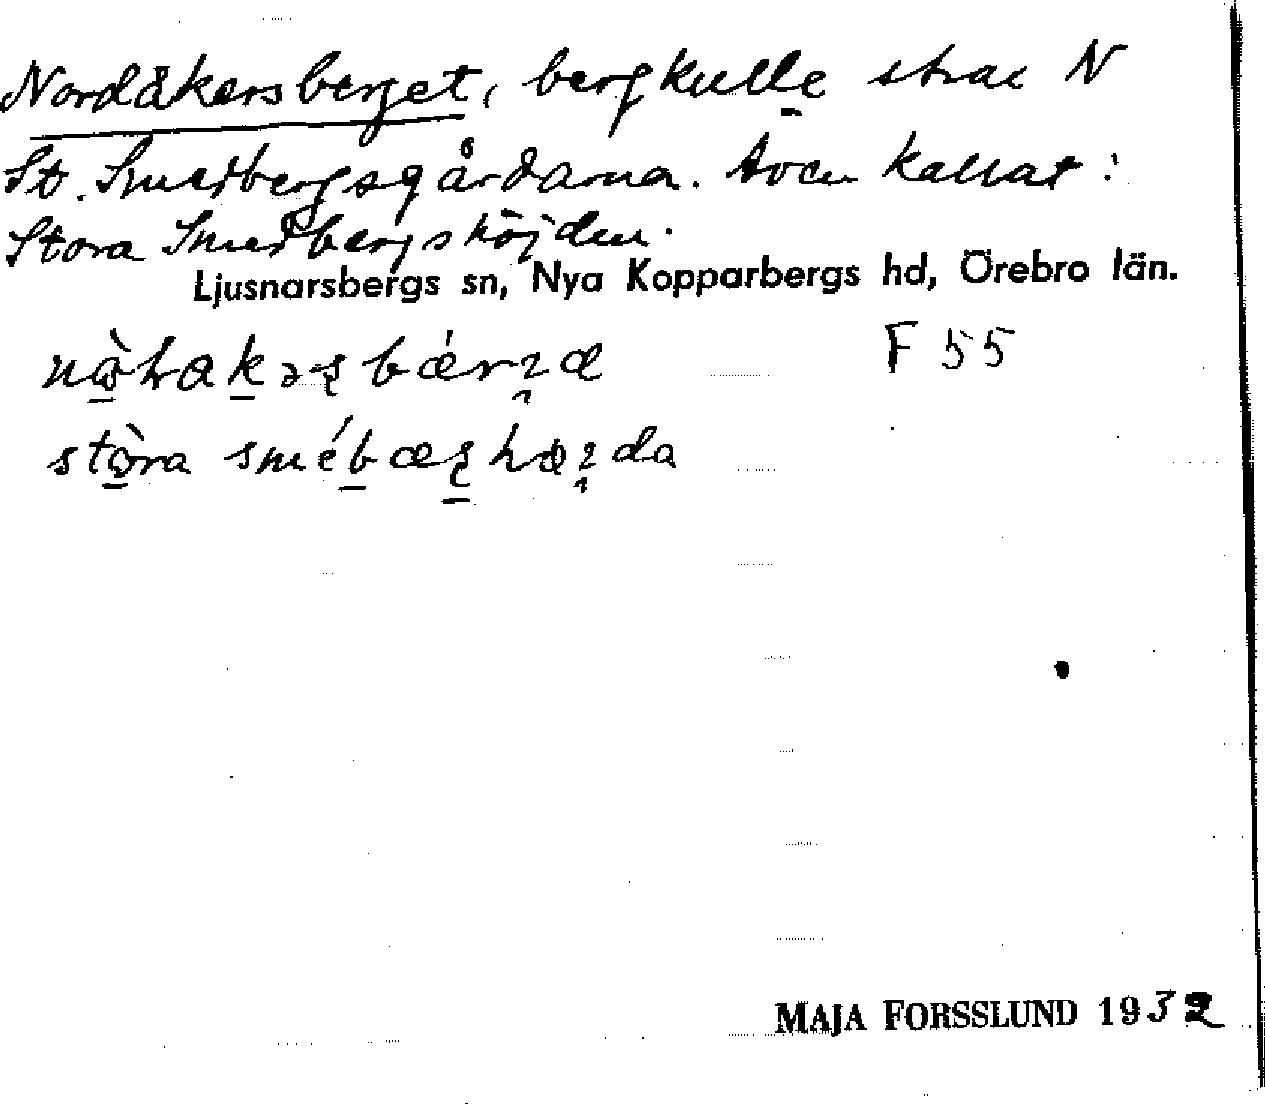 Nordåkersberget, bergkulle strax N
St. Smedbergsgårdarna. Även kallat:
Stora Smedbergshöjden.
Ljusnarsbergs sn, Nya Kopparbergs hd, Örebro län.
F 55
stòra
MAJA FORSSLUND 1932